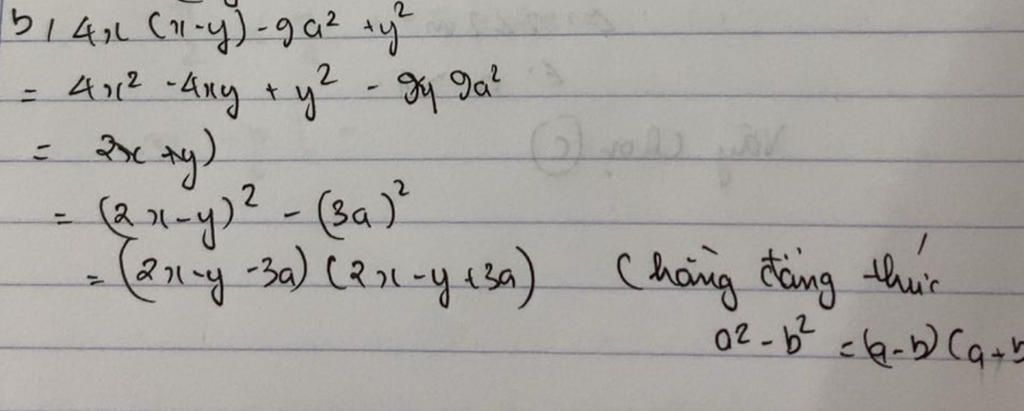 b/ 4x (x-y) - 9a² + y²
= 4x² - 4xy + y² - 9a²
= 2x + y)
= (2x - y)² - (3a)²
= (2x - y - 3a) (2x - y + 3a) (hằng đẳng thức
a² - b² = (a - b) (a + b